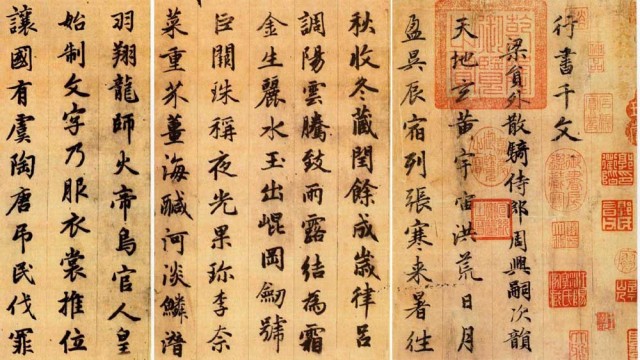 行書千文
梁員外散騎侍郎周興嗣次韻
天地玄黃宇宙洪荒日月
盈昃辰宿列張寒来暑往
秋收冬藏閏餘成歲律呂
調陽雲騰致雨露結為霜
金生麗水玉出崐岡劒號
巨闕珠稱夜光果珎李柰
菜重芥薑海醎河淡鱗潛
羽翔龍師火帝鳥官人皇
始制文字乃服衣裳推位
讓國有虞陶唐吊民伐罪